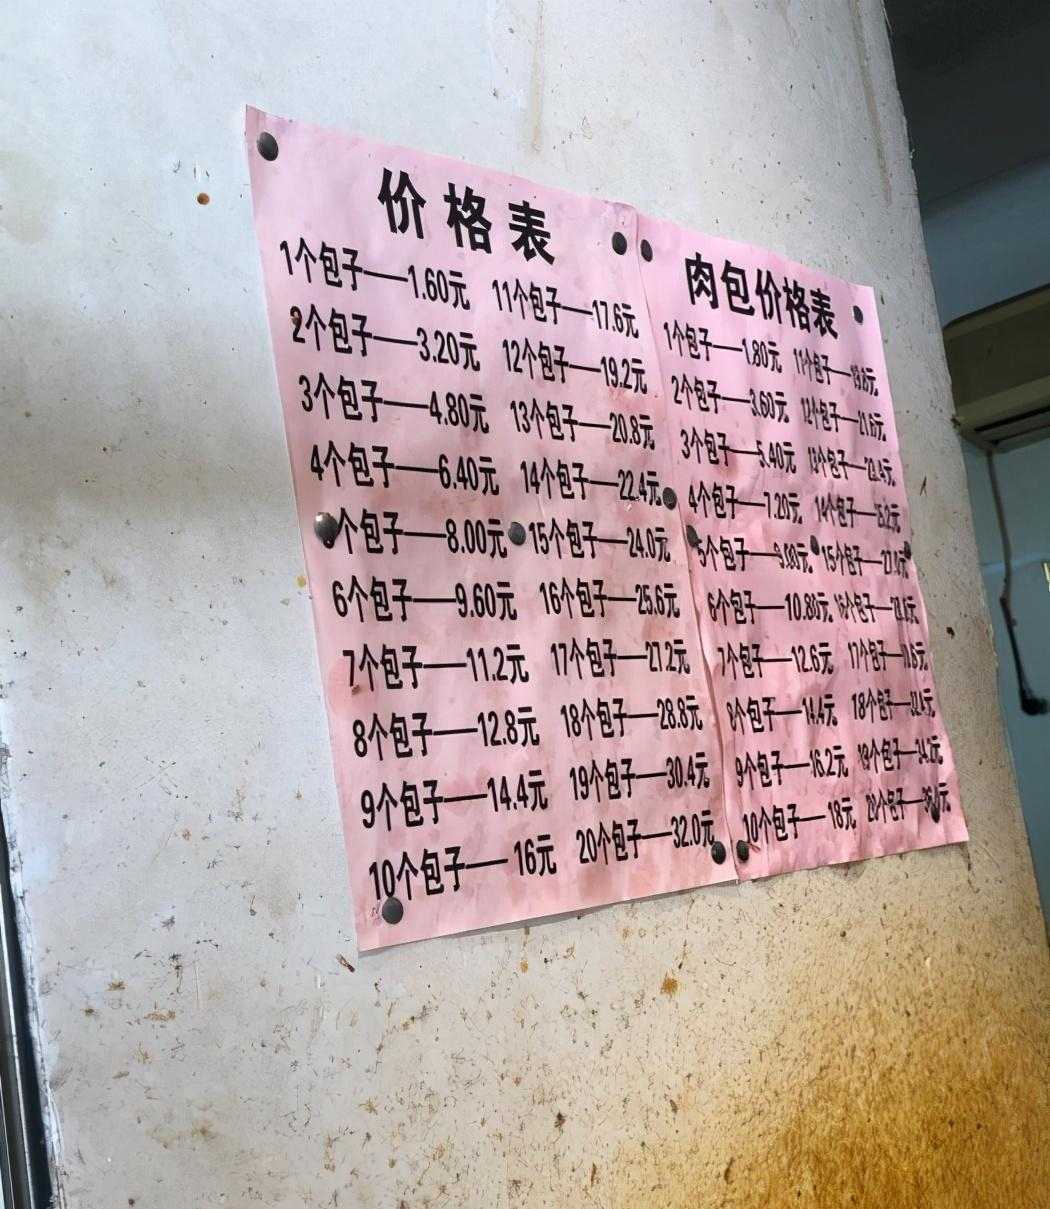 价格表
1个包子——1.60元 11个包子——17.6元
2个包子——3.20元 12个包子——19.2元
3个包子——4.80元 13个包子——20.8元
4个包子——6.40元 14个包子——22.4元
个包子——8.00元 15个包子——24.0元
6个包子——9.60元 16个包子——25.6元
7个包子——11.2元 17个包子——27.2元
8个包子——12.8元 18个包子——28.8元
9个包子——14.4元 19个包子——30.4元
10个包子——16元 20个包子——32.0元
肉包价格表
1个包子——1.80元 11个包子——19.8元
2个包子——3.60元 12个包子——21.6元
3个包子——5.40元 13个包子——
4个包子——7.20元 14个包子——25.2元
5个包子——9.00元 15个包子——27.0元
6个包子——10.80元 16个包子——
7个包子——12.6元 17个包子——
8个包子——14.4元 18个包子——32.4元
9个包子——16.2元 19个包子——34.2元
10个包子——18元 20个包子——